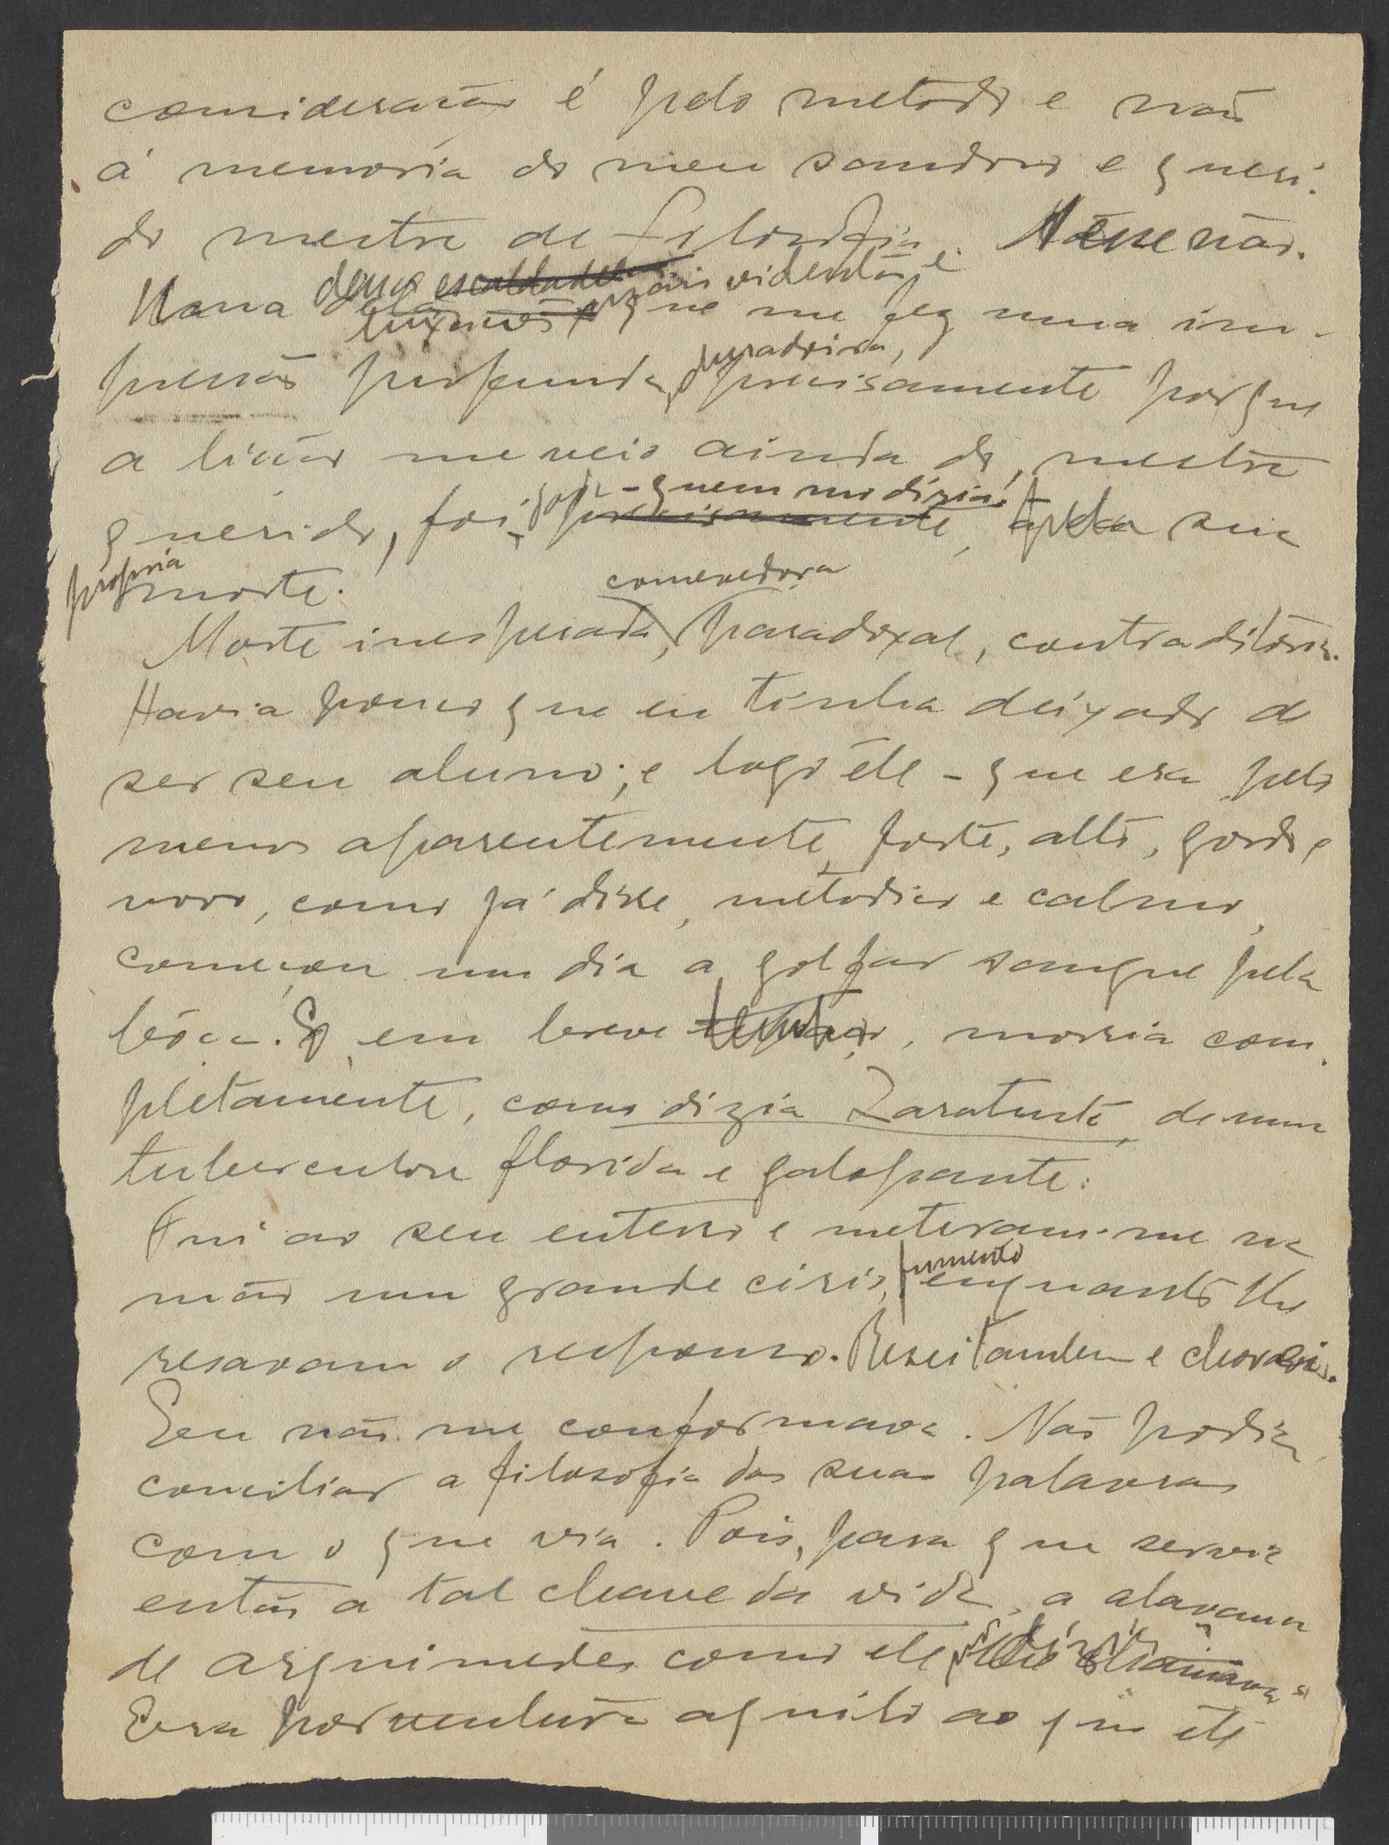 consideração é pelo metodo e não
á memoria do meu saudoso e queri-
do mestre de filosofia. A êsse não.
Uma dessas mais violentas e
lições que me fez uma im-
pressão profunda, duradoira, precisamente porque
a lição me veio ainda do mestre
querido, foi, pode-quem mo diria! pela sua
propria morte.
Morte inesperada, comovedora, paradoxal, contraditória.
Havia pouco que eu tinha deixado de
ser seu aluno; e logo êle - que era pelo
menos aparentemente, forte, alto, gordo e
novo, como já disse, metodico e calmo,
começou um dia a golfar sangue pela
bôca. E em breve, morria com-
pletamente, como dizia Zaratustra, de uma
tuberculose florida e galopante.
Fui ao seu enterro e meteram-me na
mão um grande cirio fumento enquanto lhe
resavam o responso. Resei tambem e chorei.
Eu não me conformava. Não podia
conciliar a filosofia das suas palavras
com o que via. Pois, para que servia
então a tal chave da vida, a alavanca
de arquimedes como ele
Era porventura aquilo ao que êle